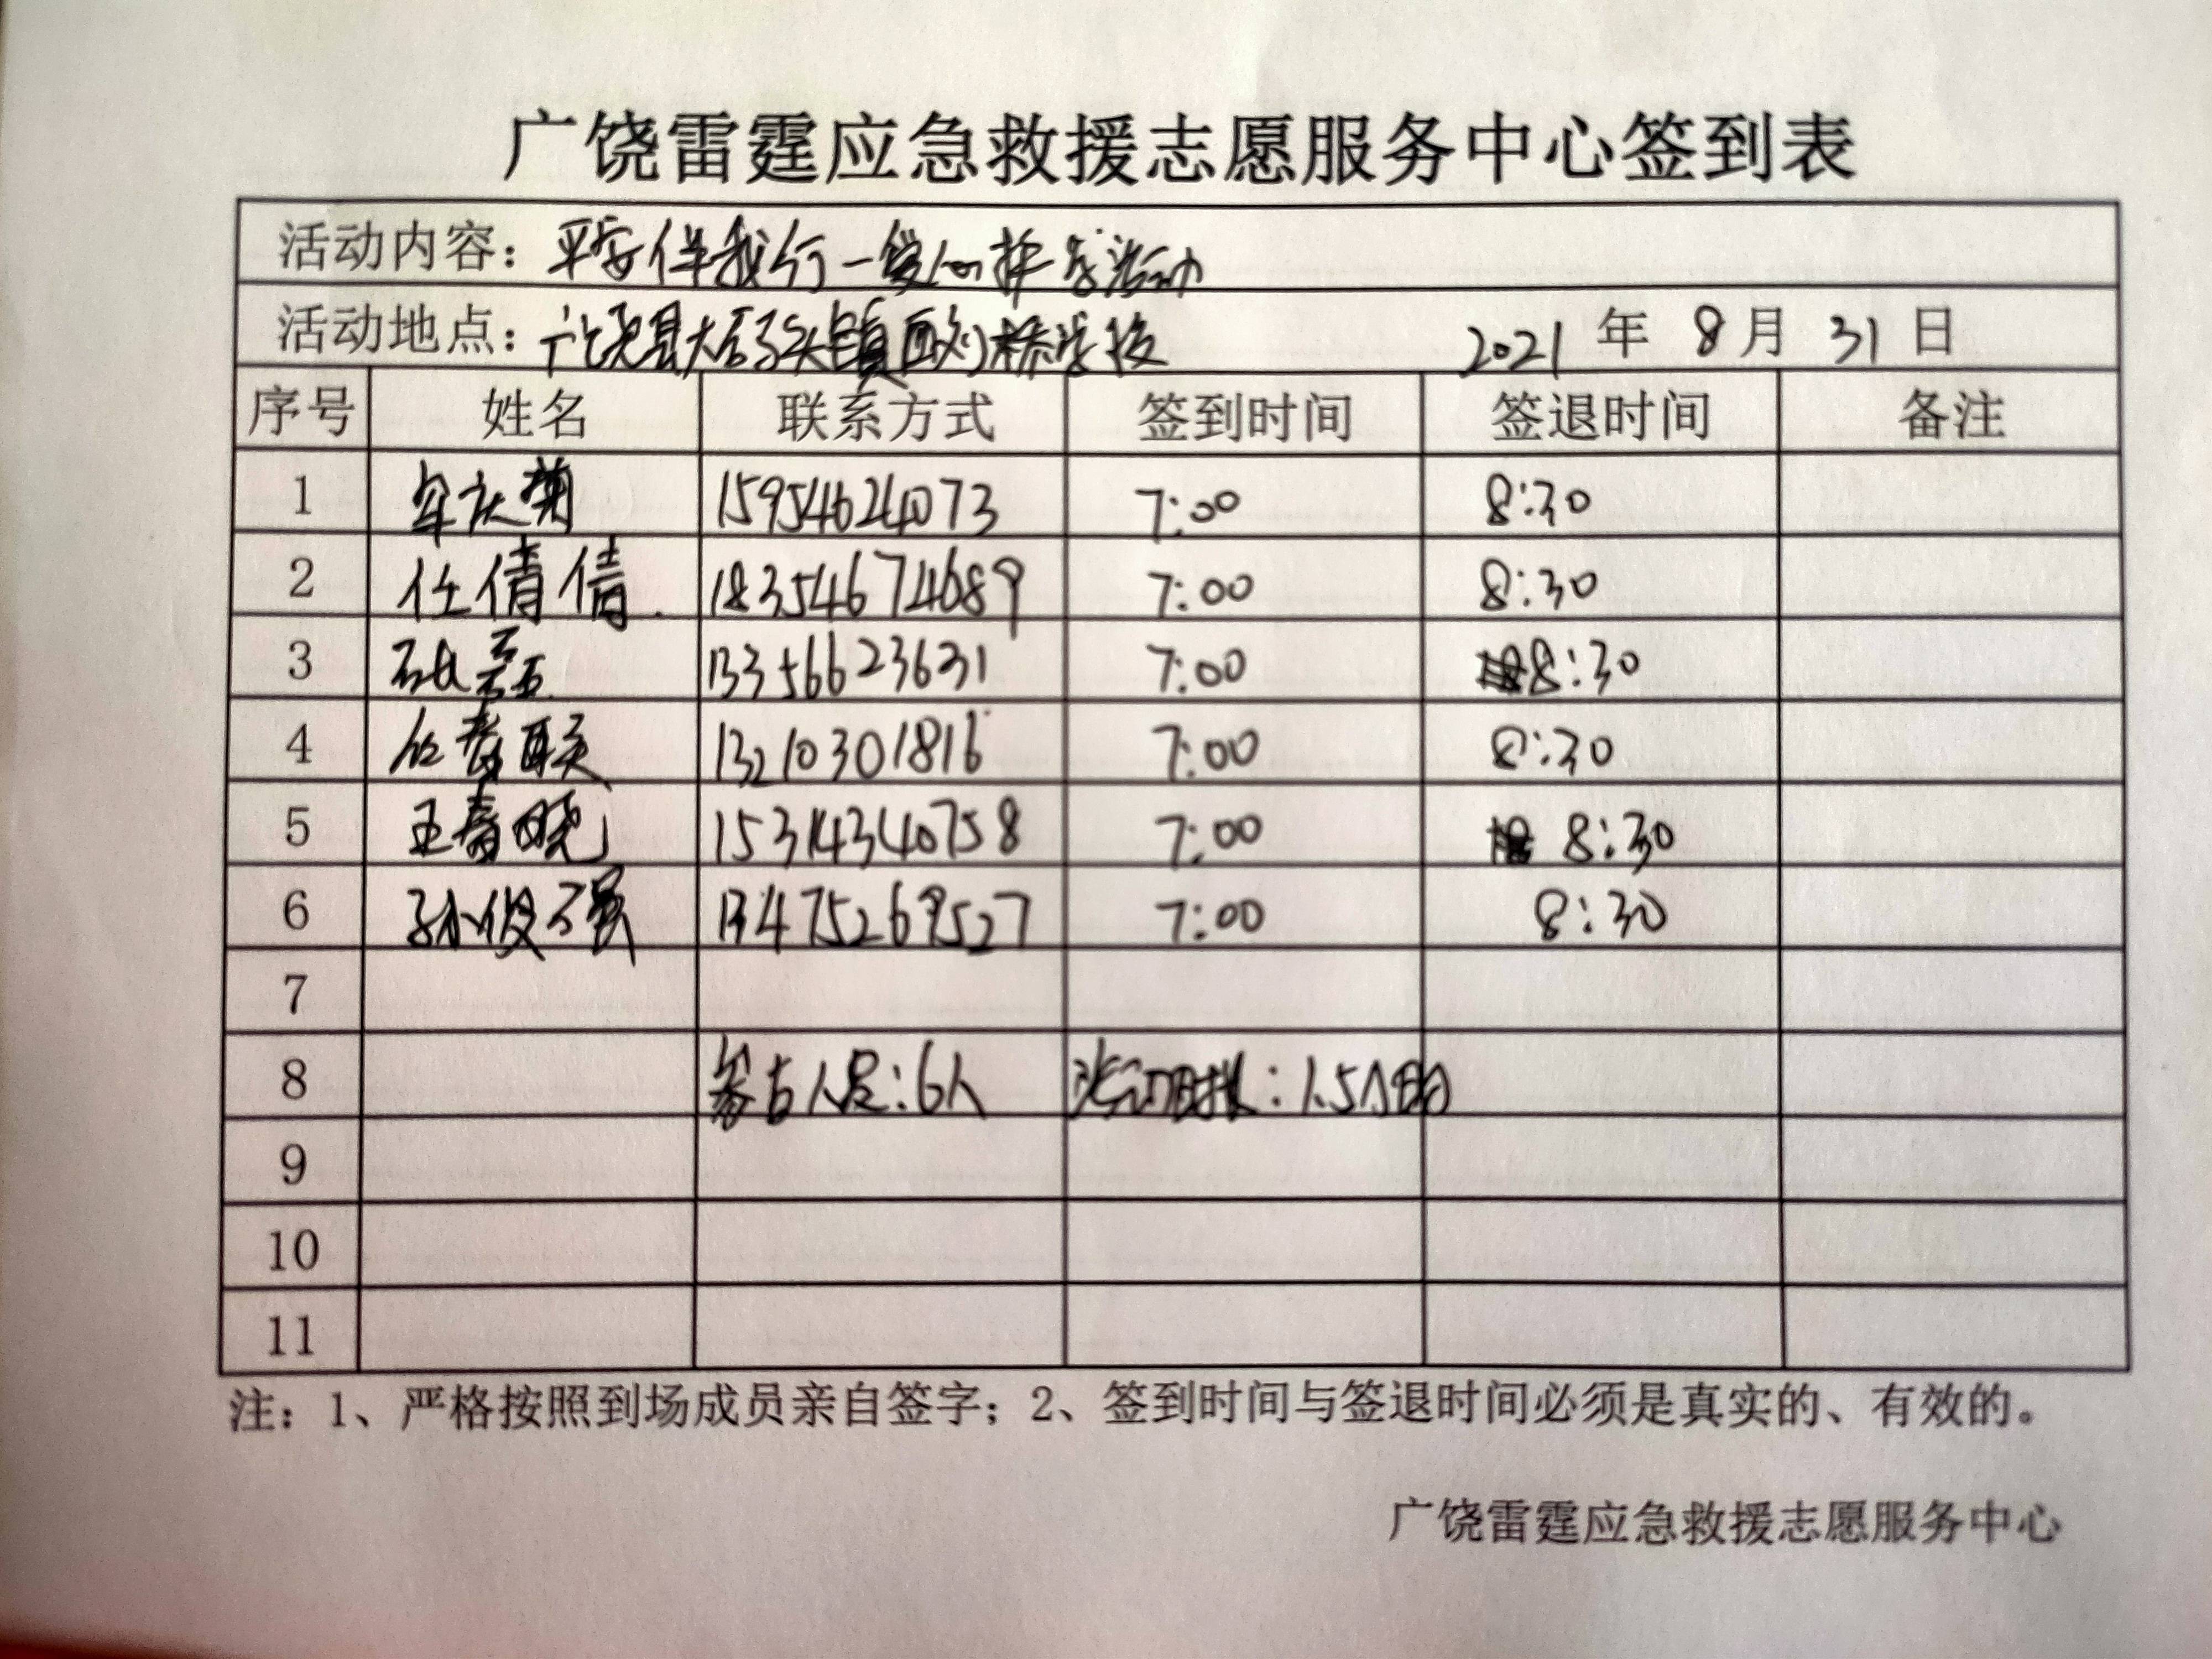 广饶雷霆应急救援志愿服务中心签到表
活动内容：平安伴我行一爱心护学活动
活动地点：广饶县大码头镇西刘桥学校 2021 年 8 月 31 日
序号 姓名 联系方式 签到时间 签退时间 备注
1 15954624073 7:00 8:30
2 任倩倩 18354674689 7:00 8:30
3 13356623631 7:00 8:30
4 13210301816 7:00 8:30
5 王春晓 15314340758 7:00 8:30
6 孙俊强 13475269527 7:00 8:30
7
8 参与人员：6人 活动时长：1.5小时
9
10
11
注：1、严格按照到场成员亲自签字；2、签到时间与签退时间必须是真实的、有效的。
广饶雷霆应急救援志愿服务中心